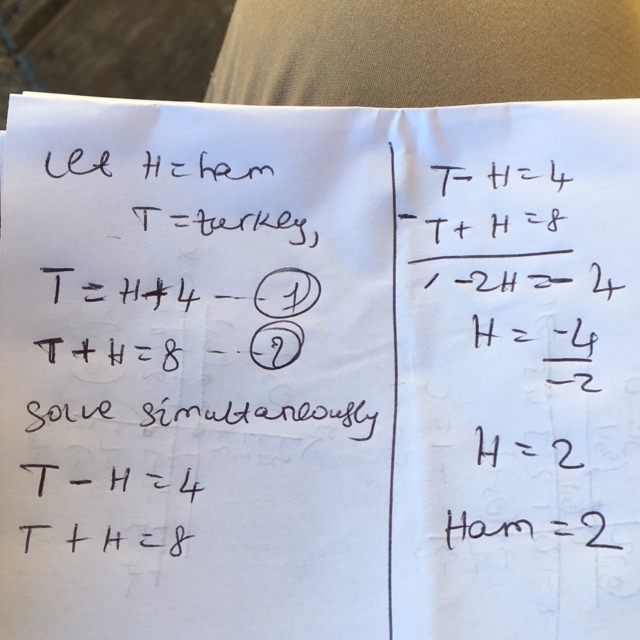 Let H = ham
T = turkey,
T = H + 4 --- 1
T + H = 8 --- 2
solve simultaneously
T - H = 4
T + H = 8
T - H = 4
- T + H = 8
-2H = - 4
H = -4
-2
H = 2
Ham = 2